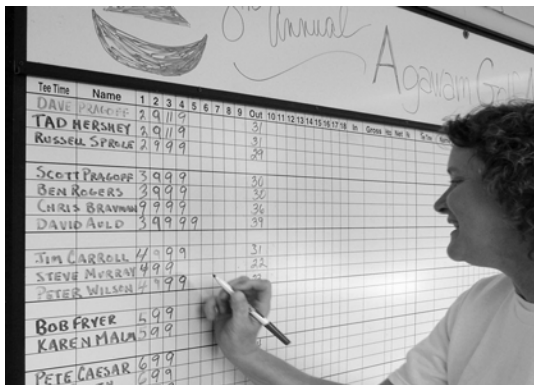 8th Annual
Agawam Golf
Tee Time Name 1 2 3 4 5 6 7 8 9 Out 10 11 12 13 14 15 16 17 18 In Gross Hcp Net
DAVE PRAGOFF 2 9 11 9 31
TAD HERSHEY 2 9 11 9 31
RUSSELL SPROLE 2 9 9 9 29
SCOTT PRAGOFF 3 9 9 9 30
BEN ROGERS 3 9 9 9 30
CHRIS BRAYMAN 9 9 9 9 36
DAVID AULD 3 9 9 9 9 39
JIM CARROLL 4 9 9 9 31
STEVE MURRAY 4 9 9 22
PETER WILSON 4 9 9 9
BOB FRYER 5 9 9
KAREN MALM 5 9 9
PETE CAESAR 6 9 9
6 9 9